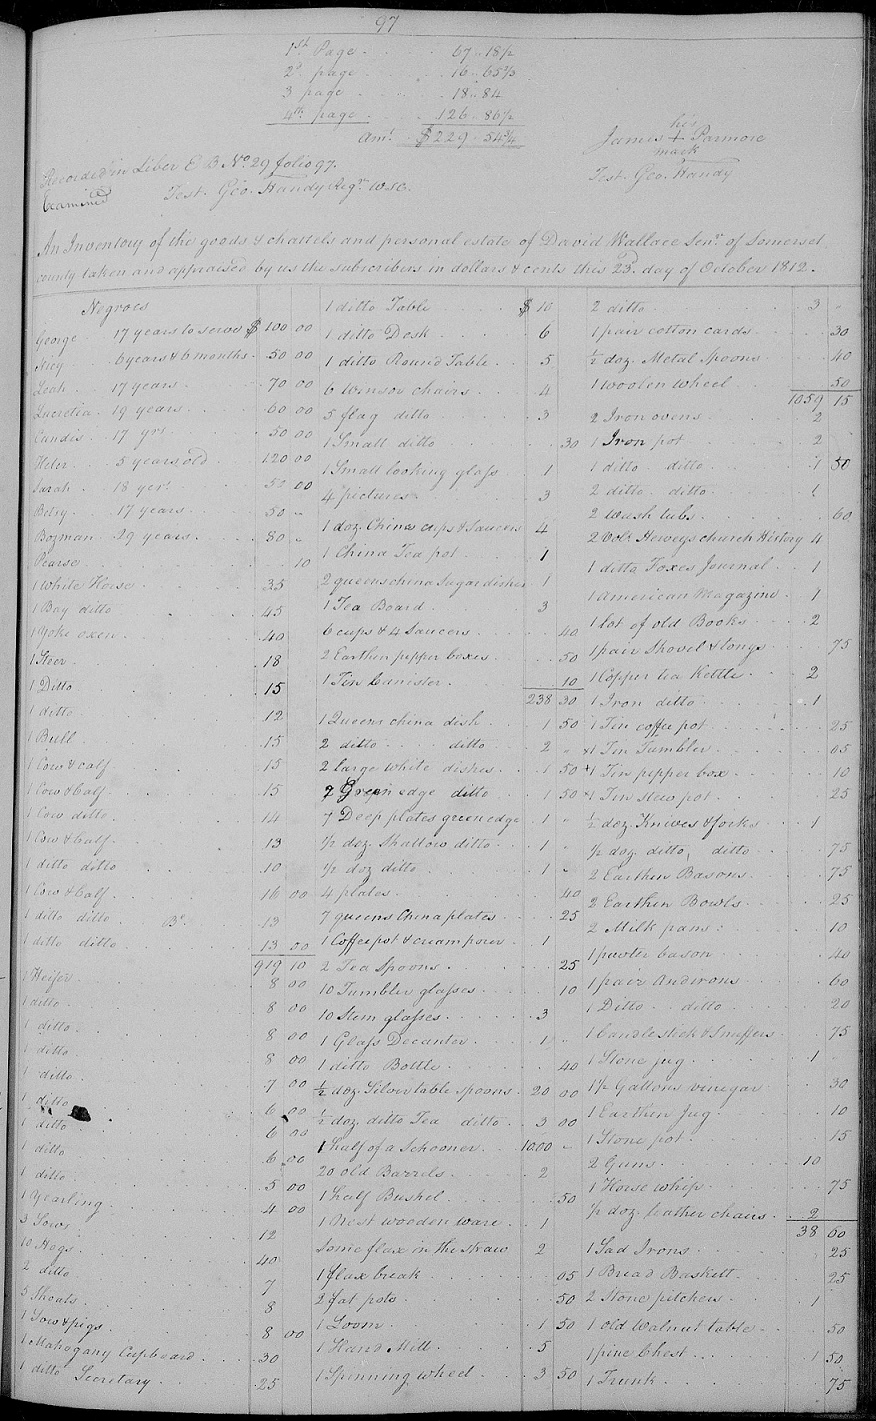 97
1st Page . . . . 67 . 18½
2d page . . . . 16 .. 65⅔
3 page . . . . 18 .. 84
4th page . . . . 126 . 86½
Amt. . . $229 . 54¼
his
James + Parmore
mark
Test. Geo. Handy
Recorded in Liber E B No 29 folio 97.
Examined
Test. Geo. Handy Regr. W.S.C.
An Inventory of the goods & chattels and personal estate of David Wallace Senr. of Somerset
county taken and appraised by us the subscribers in dollars & cents this 23d. day of October 1812.
Negroes
George 17 years to serve $ 100 00
6 years & 6 months 50 00
Leah 17 years 70 00
Lucretia 19 years 60 00
Candis 17 yrs 50 00
5 years old 120 00
Sarah 18 yers 50 00
Betsy 17 years 50 "
Bozman 29 years 80 "
Pearse 10
1 White Horse 35
1 Bay ditto 45
1 Yoke oxen 40
1 Steer 18
1 Ditto 15
1 ditto 12
1 Bull 15
1 Cow & calf 15
1 Cow & Calf 15
1 Cow ditto 14
1 Cow & Calf 13
1 ditto ditto 10
1 Cow & Calf 16 00
1 ditto ditto 13
1 ditto ditto 13 00
919 10
1 Heifer 8 00
1 ditto 8 00
1 ditto 8 00
1 ditto 8 00
1 ditto 7 00
1 ditto 6 00
1 ditto 6 00
1 ditto 6 00
1 ditto 5 00
1 Yearling 4 00
3 Sows 12
10 Hogs 40
2 ditto 7
5 Shoats 8
1 Sow & pigs 8 00
1 Mahogany Cupboard 30
1 ditto Secretary 25
1 ditto Table $ 10
1 ditto Desk 6
1 ditto Round Table 5
6 winsor chairs 4
5 flag ditto 3
1 Small ditto 30
1 Small looking glass 1
4 pictures 3
1 doz. China cups & Saucers 4
1 China Tea pot 1
2 queens china Sugar dishes 1
1 Tea Board 3
6 cups & 4 Saucers 40
2 Earthen pepper boxes 50
1 Tin Canister 10
238 30
1 Queens china dish 1 50
2 ditto ditto 2 "
2 large white dishes 1 50
2 Green edge ditto 1 50
7 Deep plates green edge 1 "
½ doz. Shallow ditto 1 "
½ doz ditto 1 "
4 plates 40
7 queens China plates 25
1 Coffee pot & cream porer 1
2 Tea Spoons 25
10 Tumbler glasses 10
10 Stem glasses 3
1 Glass Decanter 1 "
1 ditto Bottle 40
½ doz. Silver table spoons 20 00
½ doz. ditto Tea ditto 3 00
1 half of a Schooner 1000 "
20 old Barrels 2
1 half Bushel 50
1 Nest wooden ware 1
Some flax in the straw 2
1 flax break 05
2 fat pots 50
1 Loom 1 50
1 Hand Mill 5
1 Spinning wheel 3 50
2 ditto 3 "
1 pair cotton cards 30
½ doz. Metal Spoons 40
1 woolen wheel 50
1059 15
2 Iron ovens 2
1 Iron pot 2
1 ditto ditto 1 50
2 ditto ditto 1
2 wash tubs 60
2 Vols Heweys church History 4
1 ditto Foxes Journal 1
1 American Magazine 1
1 lot of old Books 2
1 pair Shovel & tongs 75
1 Copper tea Kettle 2
1 Iron ditto 1
1 Tin coffee pot 25
1 Tin Tumbler 05
1 Tin pepper box 10
1 Tin stew pot 25
½ doz. Knives & forks 1
½ doz. ditto ditto 75
2 Earthen Basons 75
2 Earthen Bowls 25
2 Milk pans 10
1 pewter bason 40
1 pair Andirons 60
1 Ditto ditto 20
1 Candle stick & Snuffers 75
1 Stone jug 1
1½ Gallons vinegar 30
1 Earthen Jug 10
1 Stone pot 15
2 Guns 10
1 Horse whip 75
½ doz. leather chairs 2
38 60
1 Sad Irons 25
1 Bread Baskett 25
2 Stone pitchers 1
1 old Walnut table 50
1 pine Chest 1 50
1 Trunk 75